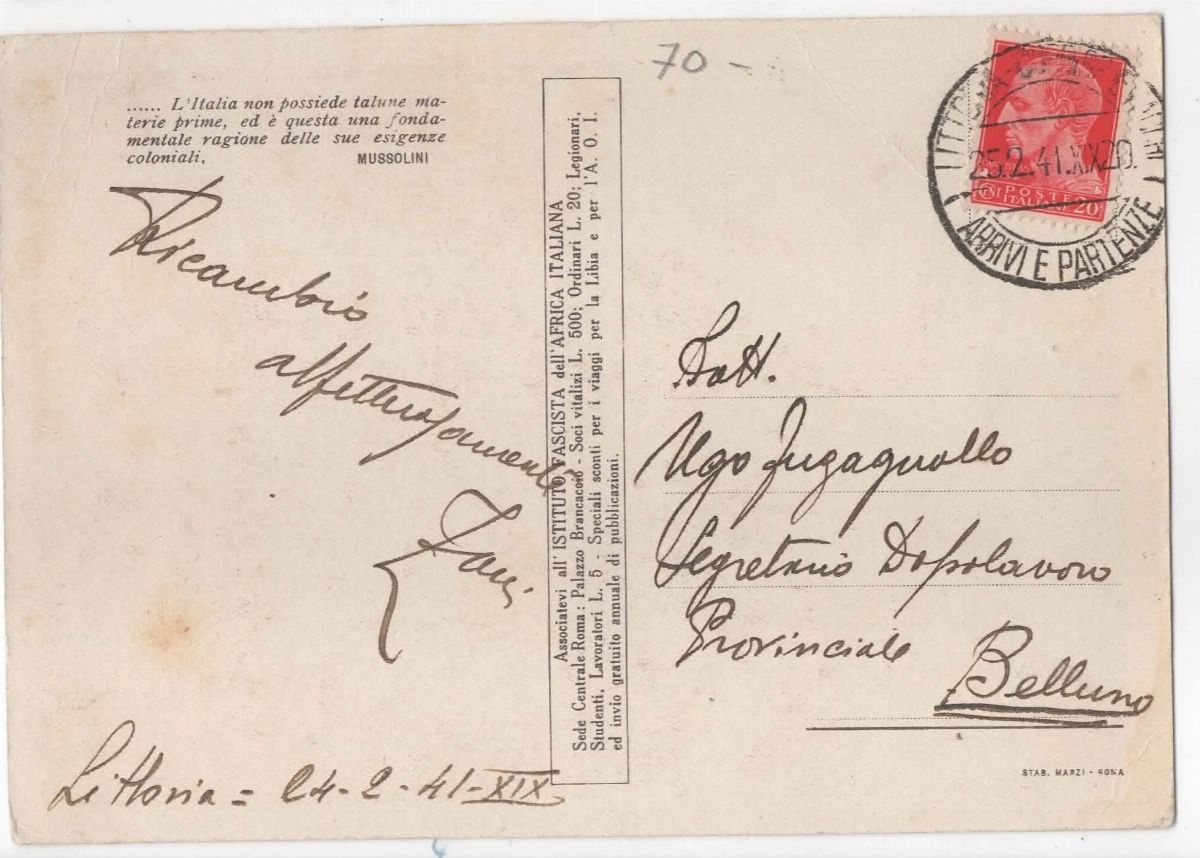 70 -
...... L'Italia non possiede talune ma-
terie prime, ed è questa una fonda-
mentale ragione delle sue esigenze
coloniali. MUSSOLINI
Ricambio
affettuosamente
Littoria = 24-2-41-XIX
Associatevi all'ISTITUTO FASCISTA dell'AFRICA ITALIANA
Sede Centrale Roma: Palazzo Brancaccio - Soci vitalizi L. 500; Ordinari L. 20; Legionari,
Studenti, Lavoratori L. 5 - Speciali sconti per i viaggi per la Libia e per l'A. O. I.
ed invio gratuito annuale di pubblicazioni.
POSTE
ITALIANE 20
LITTORIA
25.2.41.XIX 20.
ARRIVI E PARTENZE
Dott.
Ugo Fugagnollo
Segretario Dopolavoro
Provinciale
Belluno
STAB. MARZI - ROMA